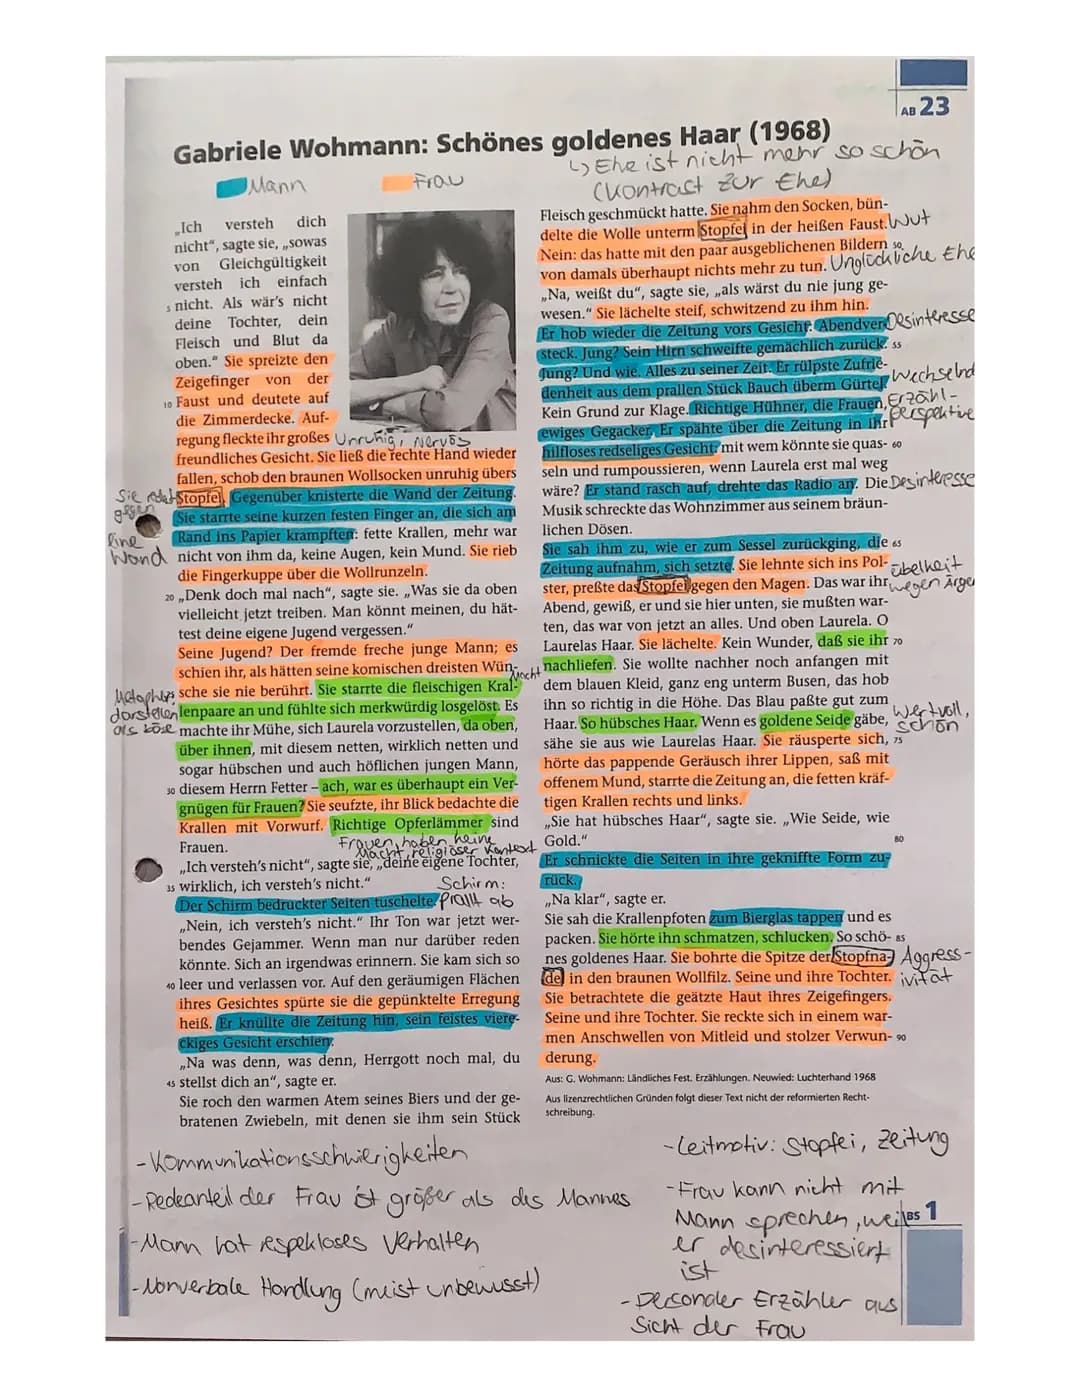 AB 23
Gabriele Wohmann: Schönes goldenes Haar (1968)
↳ Ehe ist nicht mehr so schön
(Kontrast zur Ehe)
Mann
Frau
„Ich versteh dich
nicht“, sagte sie, „sowas
von Gleichgültigkeit
versteh ich einfach
5 nicht. Als wär's nicht
deine Tochter, dein
Fleisch und Blut da
oben.“ Sie spreizte den
Zeigefinger von der
10 Faust und deutete auf
die Zimmerdecke. Auf-
regung fleckte ihr großes
Unruhig, nervös
freundliches Gesicht. Sie ließ die rechte Hand wieder
fallen, schob den braunen Wollsocken unruhig übers
Stopfei. Gegenüber knisterte die Wand der Zeitung.
Sie redet gegen eine Wand
Sie starrte seine kurzen festen Finger an, die sich am
Rand ins Papier krampften: fette Krallen, mehr war
nicht von ihm da, keine Augen, kein Mund. Sie rieb
die Fingerkuppe über die Wollrunzeln.
20 „Denk doch mal nach“, sagte sie. „Was sie da oben
vielleicht jetzt treiben. Man könnt meinen, du hät-
test deine eigene Jugend vergessen.“
Seine Jugend? Der fremde freche junge Mann; es
schien ihr, als hätten seine komischen dreisten Wün-
sche sie nie berührt. Sie starrte die fleischigen Kral-
Macht
lenpaare an und fühlte sich merkwürdig losgelöst. Es
Metaphers darstellen als böse
machte ihr Mühe, sich Laurela vorzustellen, da oben,
über ihnen, mit diesem netten, wirklich netten und
sogar hübschen und auch höflichen jungen Mann,
30 diesem Herrn Fetter – ach, war es überhaupt ein Ver-
gnügen für Frauen? Sie seufzte, ihr Blick bedachte die
Krallen mit Vorwurf. Richtige Opferlämmer sind
Frauen.
Frauen haben keine
Macht, religiöser Kontext
„Ich versteh's nicht“, sagte sie, „deine eigene Tochter,
35 wirklich, ich versteh's nicht.“
Schirm:
Der Schirm bedruckter Seiten tuschelte.
Prallt ab
„Nein, ich versteh's nicht.“ Ihr Ton war jetzt wer-
bendes Gejammer. Wenn man nur darüber reden
könnte. Sich an irgendwas erinnern. Sie kam sich so
40 leer und verlassen vor. Auf den geräumigen Flächen
ihres Gesichtes spürte sie die gepünktelte Erregung
heiß. Er knüllte die Zeitung hin, sein feistes viere-
ckiges Gesicht erschien.
„Na was denn, was denn, Herrgott noch mal, du
45 stellst dich an“, sagte er.
Sie roch den warmen Atem seines Biers und der ge-
bratenen Zwiebeln, mit denen sie ihm sein Stück
Fleisch geschmückt hatte. Sie nahm den Socken, bün-
delte die Wolle unterm Stopfei in der heißen Faust.
Wut
Nein: das hatte mit den paar ausgeblichenen Bildern 50
von damals überhaupt nichts mehr zu tun.
Unglückliche Ehe
„Na, weißt du“, sagte sie, „als wärst du nie jung ge-
wesen.“ Sie lächelte steif, schwitzend zu ihm hin.
Er hob wieder die Zeitung vors Gesicht: Abendver-
Desinteresse
steck. Jung? Sein Hirn schweifte gemächlich zurück. 55
Jung? Und wie. Alles zu seiner Zeit. Er rülpste Zufrie-
denheit aus dem prallen Stück Bauch überm Gürtel.
Wechselnd
Kein Grund zur Klage. Richtige Hühner, die Frauen,
Erzähl-
ewiges Gegacker. Er spähte über die Zeitung in ihr
perspektive
hilfloses redseliges Gesicht; mit wem könnte sie quas- 60
seln und rumpoussieren, wenn Laurela erst mal weg
wäre? Er stand rasch auf, drehte das Radio an. Die
Desinteresse
Musik schreckte das Wohnzimmer aus seinem bräun-
lichen Dösen.
Sie sah ihm zu, wie er zum Sessel zurückging, die 65
Zeitung aufnahm, sich setzte. Sie lehnte sich ins Pol-
Übelkeit
ster, preßte das Stopfei gegen den Magen. Das war ihr
wegen Ärger
Abend, gewiß, er und sie hier unten, sie mußten war-
ten, das war von jetzt an alles. Und oben Laurela. O
Laurelas Haar. Sie lächelte. Kein Wunder, daß sie ihr 70
nachliefen. Sie wollte nachher noch anfangen mit
dem blauen Kleid, ganz eng unterm Busen, das hob
ihn so richtig in die Höhe. Das Blau paßte gut zum
Haar. So hübsches Haar. Wenn es goldene Seide gäbe,
Wertvoll,
schön
sähe sie aus wie Laurelas Haar. Sie räusperte sich, 75
hörte das pappende Geräusch ihrer Lippen, saß mit
offenem Mund, starrte die Zeitung an, die fetten kräf-
tigen Krallen rechts und links.
„Sie hat hübsches Haar“, sagte sie. „Wie Seide, wie
Gold.“ 80
Er schnickte die Seiten in ihre gekniffte Form zu-
rück.
„Na klar“, sagte er.
Sie sah die Krallenpfoten zum Bierglas tappen und es
packen. Sie hörte ihn schmatzen, schlucken. So schö- 85
nes goldenes Haar. Sie bohrte die Spitze der Stopfna-
Aggress-
del in den braunen Wollfilz. Seine und ihre Tochter.
ivität
Sie betrachtete die geätzte Haut ihres Zeigefingers.
Seine und ihre Tochter. Sie reckte sich in einem war-
men Anschwellen von Mitleid und stolzer Verwun- 90
derung.
Aus: G. Wohmann: Ländliches Fest. Erzählungen. Neuwied: Luchterhand 1968
Aus lizenzrechtlichen Gründen folgt dieser Text nicht der reformierten Recht-
schreibung.
- Kommunikationsschwierigkeiten
- Redeanteil der Frau ist größer als des Mannes
- Mann hat respekloses Verhalten
- Nonverbale Handlung (meist unbewusst)
- Leitmotiv: Stopfei, Zeitung
- Frau kann nicht mit
Mann sprechen, weil
er desinteressiert
ist
- Personaler Erzähler aus
Sicht der Frau
ABS 1